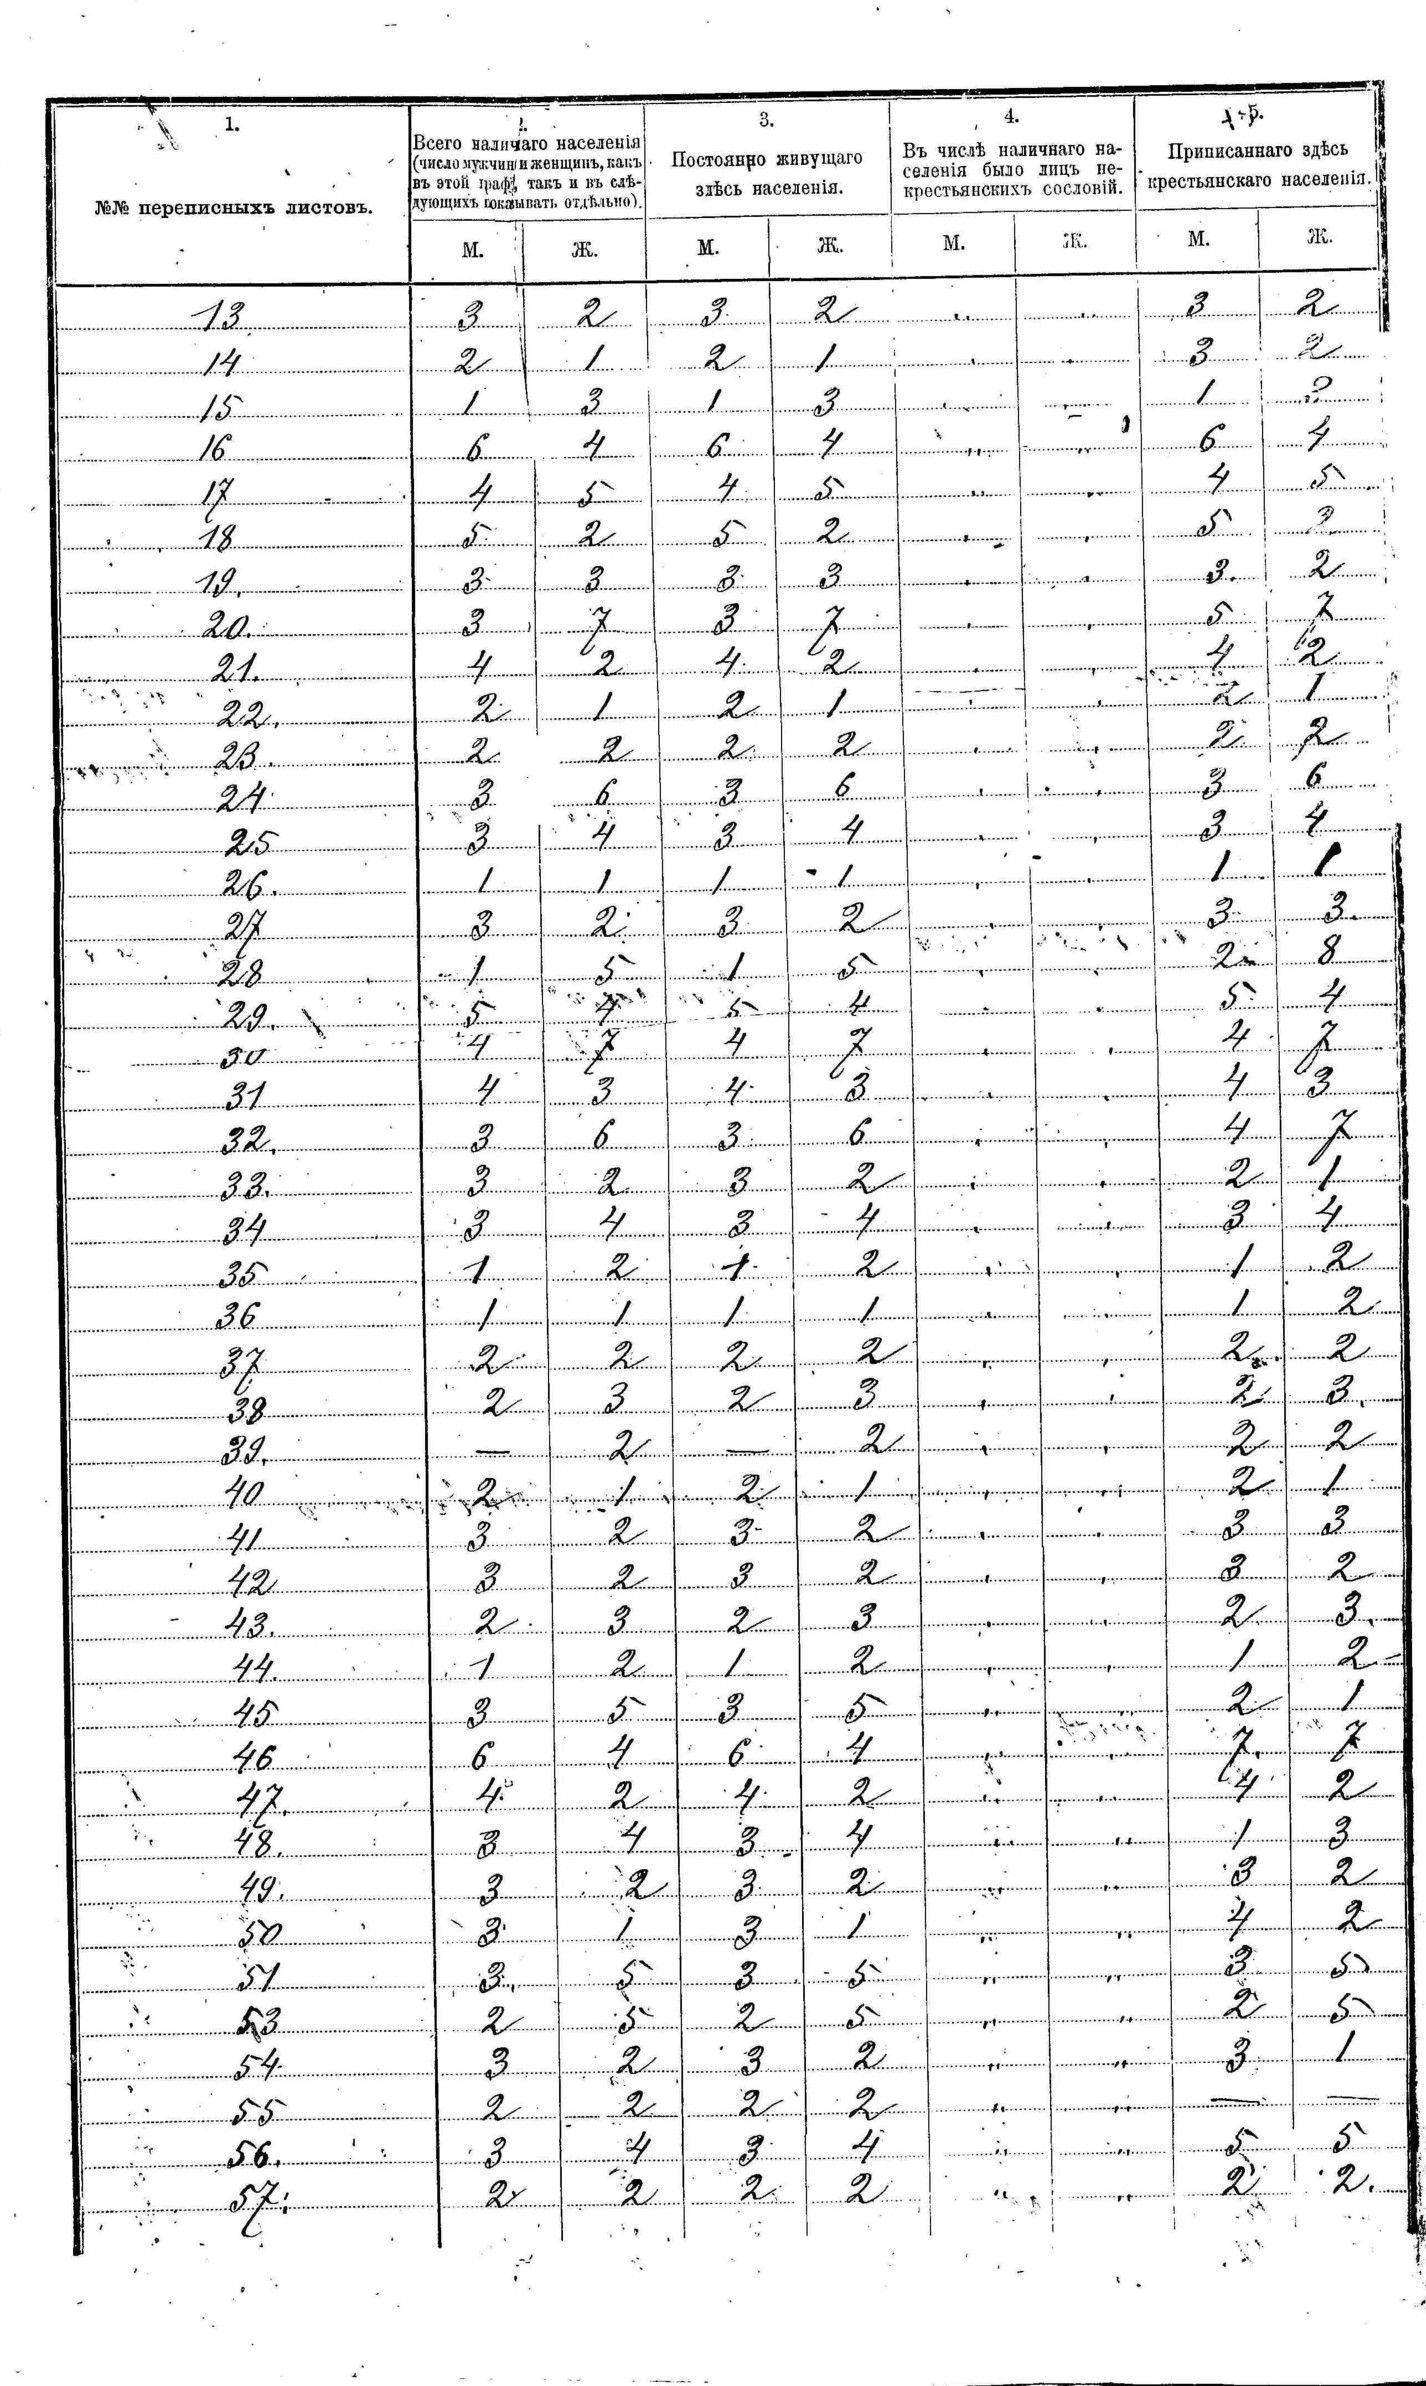 1. 2. 3. 4. 5.
№№ переписныхъ листовъ.
Всего наличнаго населенія
(число мужчинъ и женщинъ, какъ
въ этой графѣ, такъ и въ слѣ-
дующихъ показывать отдѣльно).
Постоянно живущаго
здѣсь населенія.
Въ числѣ наличнаго на-
селенія было лицъ не-
крестьянскихъ сословій.
Приписаннаго здѣсь
крестьянскаго населенія.
М. Ж. М. Ж. М. Ж. М. Ж.
13 3 2 3 2 " " 3 2
14 2 1 2 1 " " 3 2
15 1 3 1 3 " " 1 3
16 6 4 6 4 " " 6 4
17 4 5 4 5 " " 4 5
18 5 2 5 2 " " 5 2
19. 3 3 3 3 " " 3. 2
20. 3 7 3 7 " " 5 7
21. 4 2 4 2 " " 4 2
22. 2 1 2 1 " " 2 1
23. 2 2 2 2 " " 2 2
24 3 6 3 6 " " 3 6
25 3 4 3 4 " " 3 4
26. 1 1 1 1 " " 1 1
27 3 2 3 2 " " 3 3.
28 1 5 1 5 " " 2 8
29. 5 4 5 4 " " 5 4
30 4 7 4 7 " " 4 7
31 4 3 4 3 " " 4 3
32. 3 6 3 6 " " 4 7
33. 3 2 3 2 " " 2 1
34 3 4 3 4 " " 3 4
35 1 2 1 2 " " 1 2
36 1 1 1 1 " " 1 2
37 2 2 2 2 " " 2 2
38 2 3 2 3 " " 2 3.
39. — 2 — 2 " " 2 2
40 2 1 2 1 " " 2 1
41 3 2 3 2 " " 3 3
42 3 2 3 2 " " 3 2
43. 2 3 2 3 " " 2 3.
44. 1 2 1 2 " " 1 2
45 3 5 3 5 " " 2 1
46 6 4 6 4 " " 7. 7
47. 4 2 4 2 " " 4 2
48. 3 4 3 4 " " 1 3
49. 3 2 3 2 " " 3 2
50 3 1 3 1 " " 4 2
51 3. 5 3 5 " " 3 5
53 2 5 2 5 " " 2 5
54. 3 2 3 2 " " 3 1
55 2 2 2 2 " " — —
56. 3 4 3 4 " " 5 5
57. 2 2 2 2 " " 2 2.